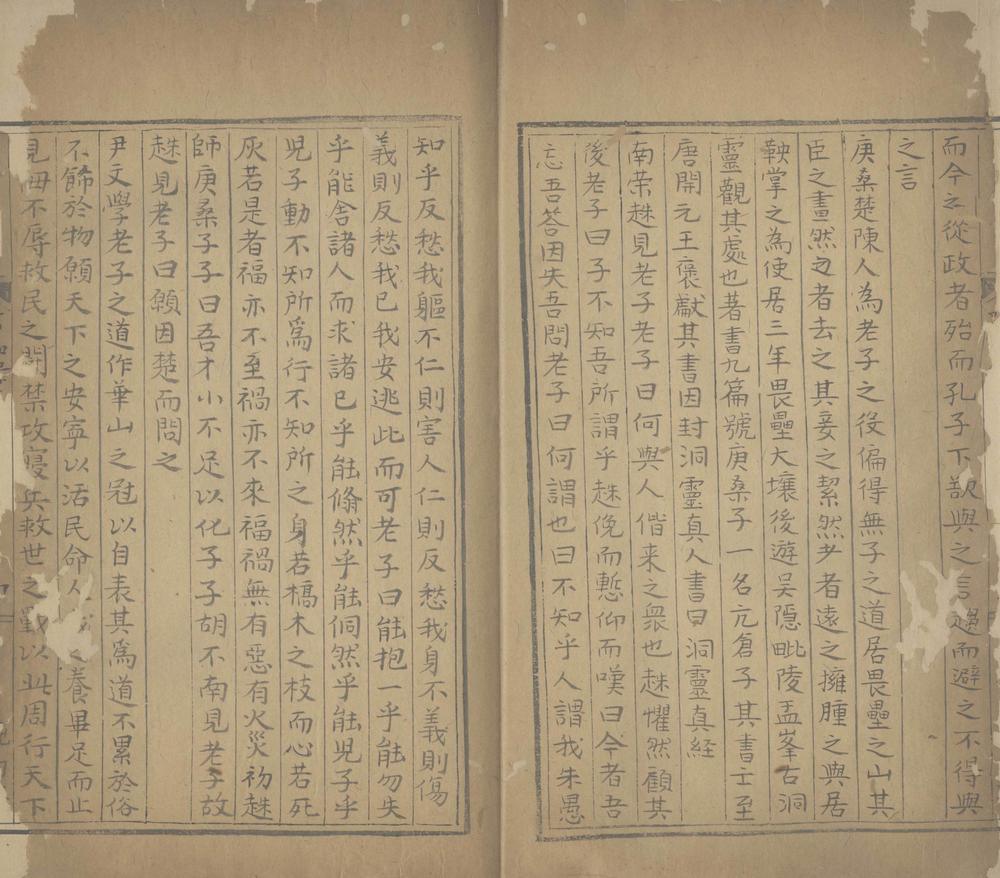 而今之從政者殆而孔子下欲與之言趨而避之不得與
之言
庚桑楚陳人為老子之役偏得無子之道居畏壘之山其
臣之畫然知者去之其妾之絜然仁者遠之擁腫之與居
鞅掌之為使居三年畏壘大壤後遊吳隱毗陵盂峯古洞
靈觀其處也著書九篇號庚桑子一名亢倉子其書士至
唐開元王襃獻其書因封洞靈真人書曰洞靈真經
南荣趎見老子老子曰何與人偕来之衆也趎懼然顧其
後老子曰子不知吾所謂乎趎俛而慙仰而嘆曰今者吾
忘吾荅因失吾問老子曰何謂也曰不知乎人謂我朱愚
知乎反愁我軀不仁則害人仁則反愁我身不義則傷
義則反愁我已我安逃此而可老子曰能抱一乎能勿失
乎能舍諸人而求諸已乎能翛然乎能侗然乎能児子乎
児子動不知所爲行不知所之身若槁木之枝而心若死
灰若是者福亦不至禍亦不來福禍無有惡有火災初趎
師庚桑子子曰吾才小不足以化子子胡不南見老子故
趎見老子曰願因楚而問之
尹文學老子之道作華山之冠以自表其爲道不累於俗
不飾於物願天下之安寧以活民命人我之養畢足而止
見侮不辱救民之鬪禁攻寝兵救世之戰以此周行天下